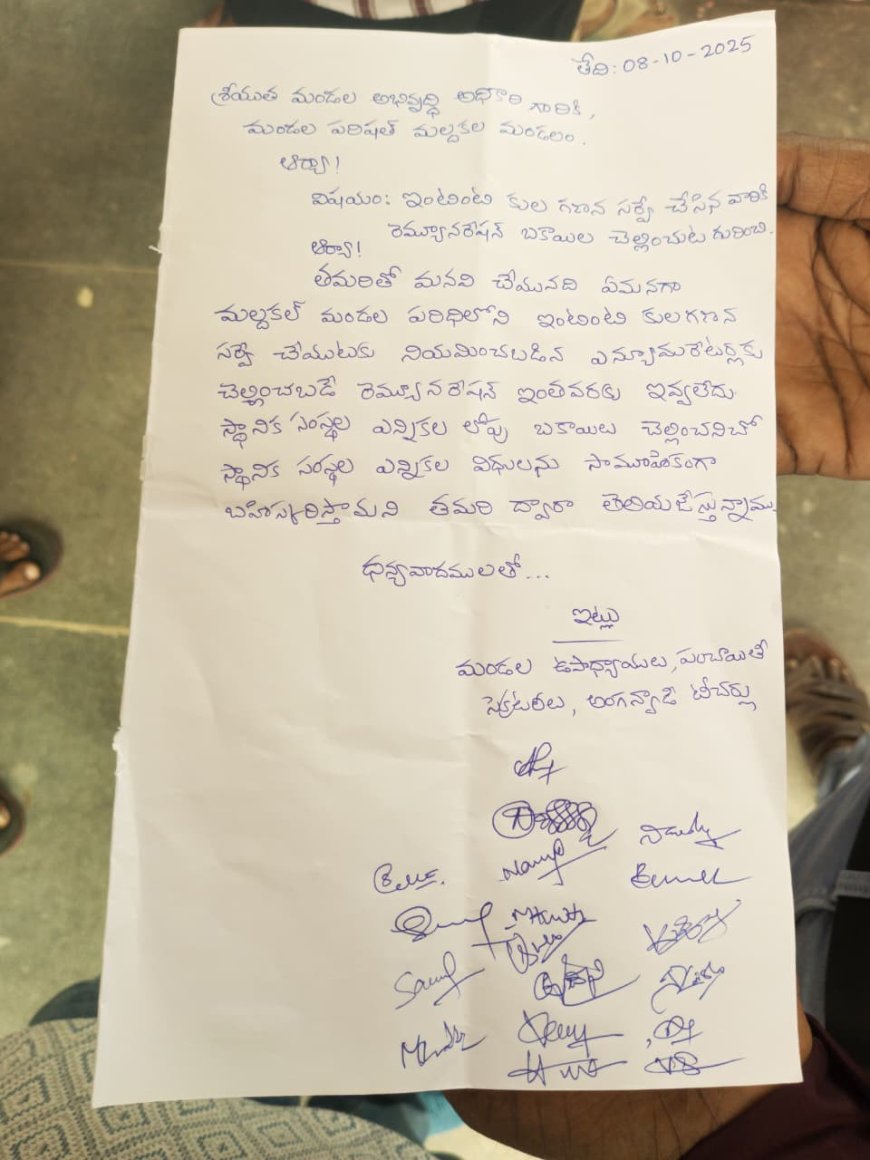 తేది: 08-10-2025
శ్రీయుత మండల అభివృద్ధి అధికారి గారికి,
మండల పరిషత్ మల్దకల మండలం.
ఆర్యా!
విషయం: ఇంటింటి కుల గణన సర్వే చేసిన వారికి
రెమ్యూనరేషన్ బకాయిల చెల్లించుట గురించి.
ఆర్యా!
తమరితో మనవి చేయునది ఏమనగా
మల్దకల్ మండల పరిధిలోని ఇంటింటి కులగణన
సర్వే చేయుటకు నియమించబడిన ఎన్యూమరేటర్లకు
చెల్లించబడే రెమ్యూనరేషన్ ఇంతవరకు ఇవ్వలేదు.
స్థానిక సంస్థల ఎన్నికల లోపు బకాయిలు చెల్లించనిచో
స్థానిక సంస్థల ఎన్నికల విధులను సామూహికంగా
బహిస్కరిస్తామని తమరి ద్వారా తెలియజేస్తున్నాము.
ధన్యవాదములతో...
ఇట్లు
మండల ఉపాధ్యాయులు, పంచాయితీ
సెక్రటరీలు, అంగన్వాడి టీచర్లు